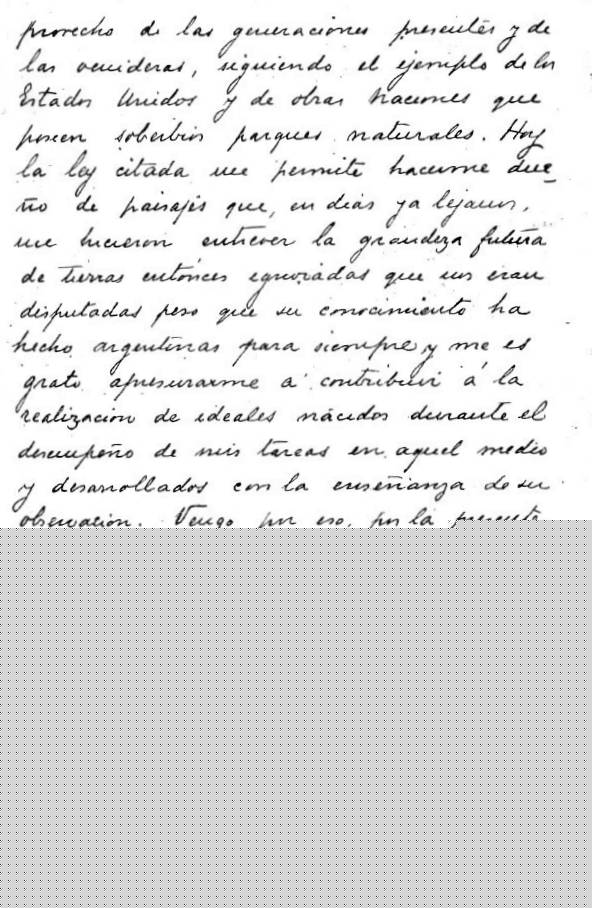 provecho de las generaciones presentes y de
las venideras, siguiendo el ejemplo de los
Estados Unidos y de otras naciones que
poseen soberbios parques naturales. Hoy
la ley citada me permite hacerme due-
ño de paisajes que, en dias ya lejanos,
me hicieron entrever la grandeza futura
de tierras entónces ignoradas que nos eran
disputadas pero que su conocimiento ha
hecho argentinas para siempre y me es
grato apresurarme á contribuir á la
realizacion de ideales nacidos durante el
desempeño de mis tareas en aquel medio
y desarrollados con la enseñanza de su
observacion. Vengo por eso, por la presente